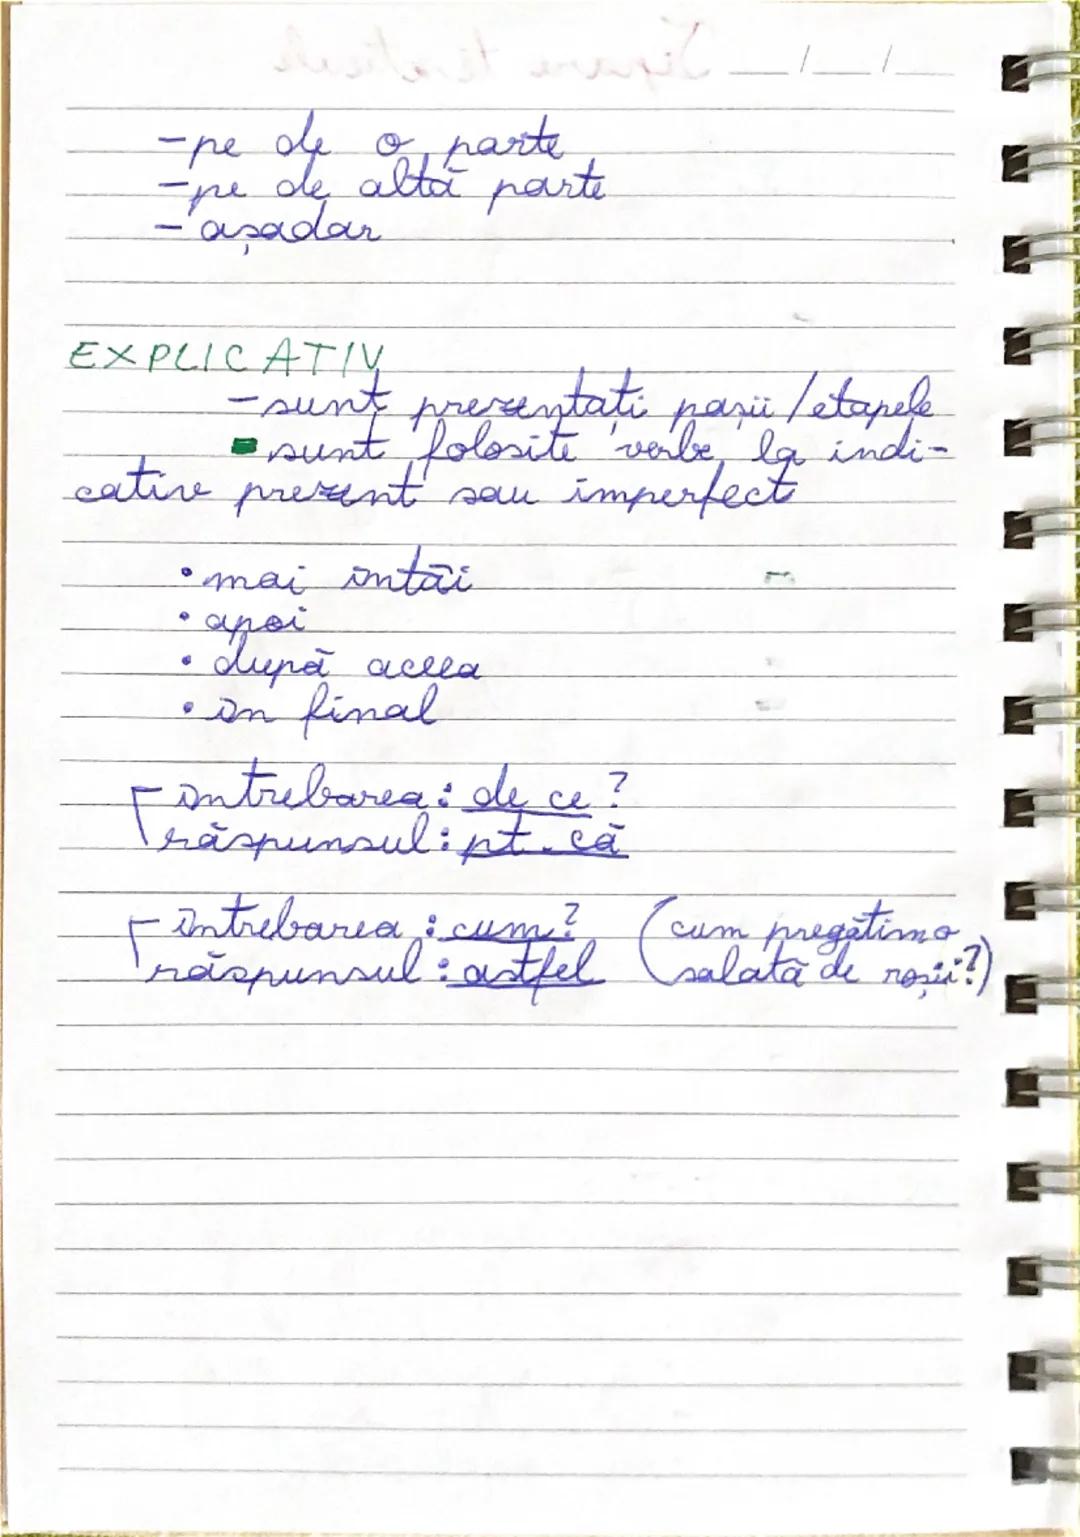 -pe de o parte
-pe de altă parte
-așadar
EXPLICATIV
-sunt prezentați pașii/etapele
-sunt folosite verbe la indi-
cativ prezent sau imperfect
•mai întâi
•apoi
•după aceea
•în final
-întrebarea: de ce?
răspunsul: pt. că
-întrebarea: cum? (cum pregătim o
răspunsul: astfel salată de roșii?)